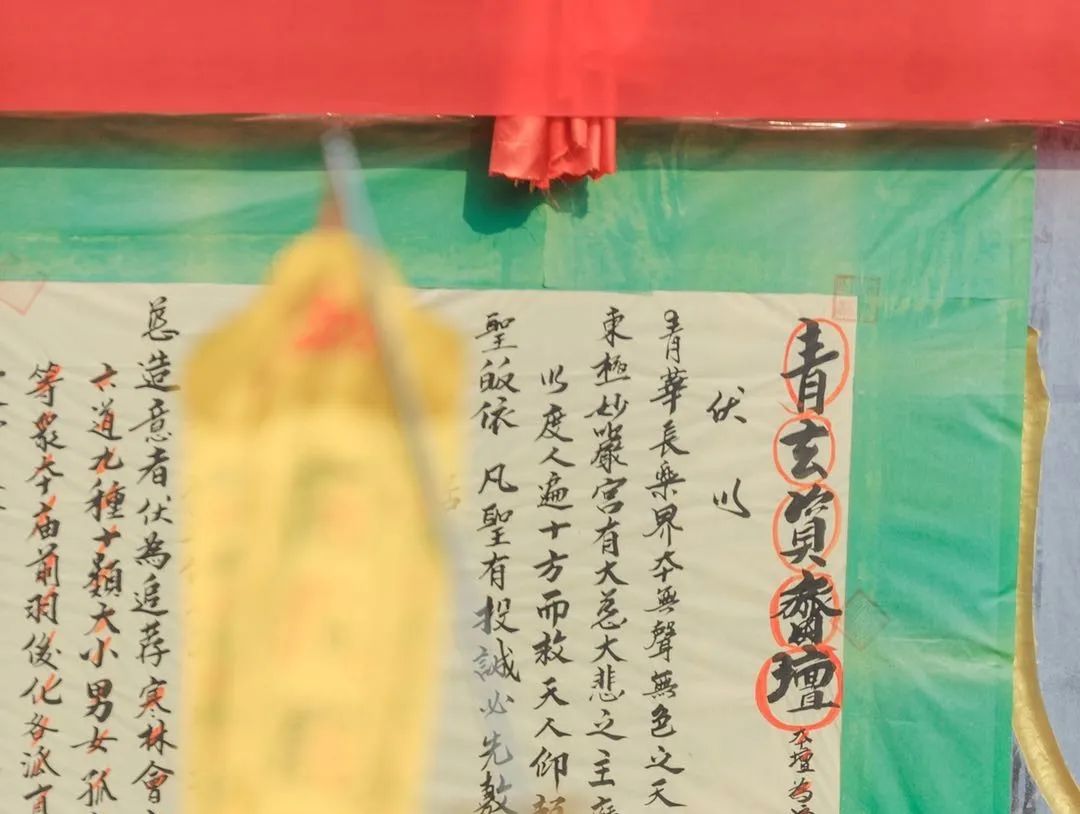 青玄資壇
本壇為
伏以
青華長樂界夲無聲無色之天
東極妙嚴宮有大慈大悲之主
以度人遍十方而救天人仰
聖皈依 凡聖有投誠必先敷
慈造意者伏為追荐寒林會
六道九種十類大小男女孤
等眾夲庙前羽後化各派